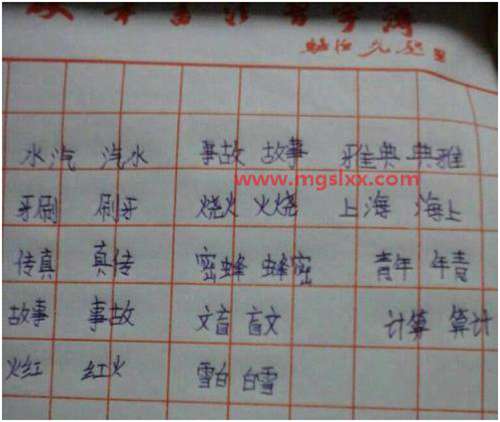 水汽 汽水 事故 故事 雅典 典雅
www.mgslxx.com
牙刷 刷牙 烧火 火烧 上海 海上
传真 真传 密蜂 蜂密 青年 年青
故事 事故 文盲 盲文 计算 算计
火红 红火 雪白 白雪